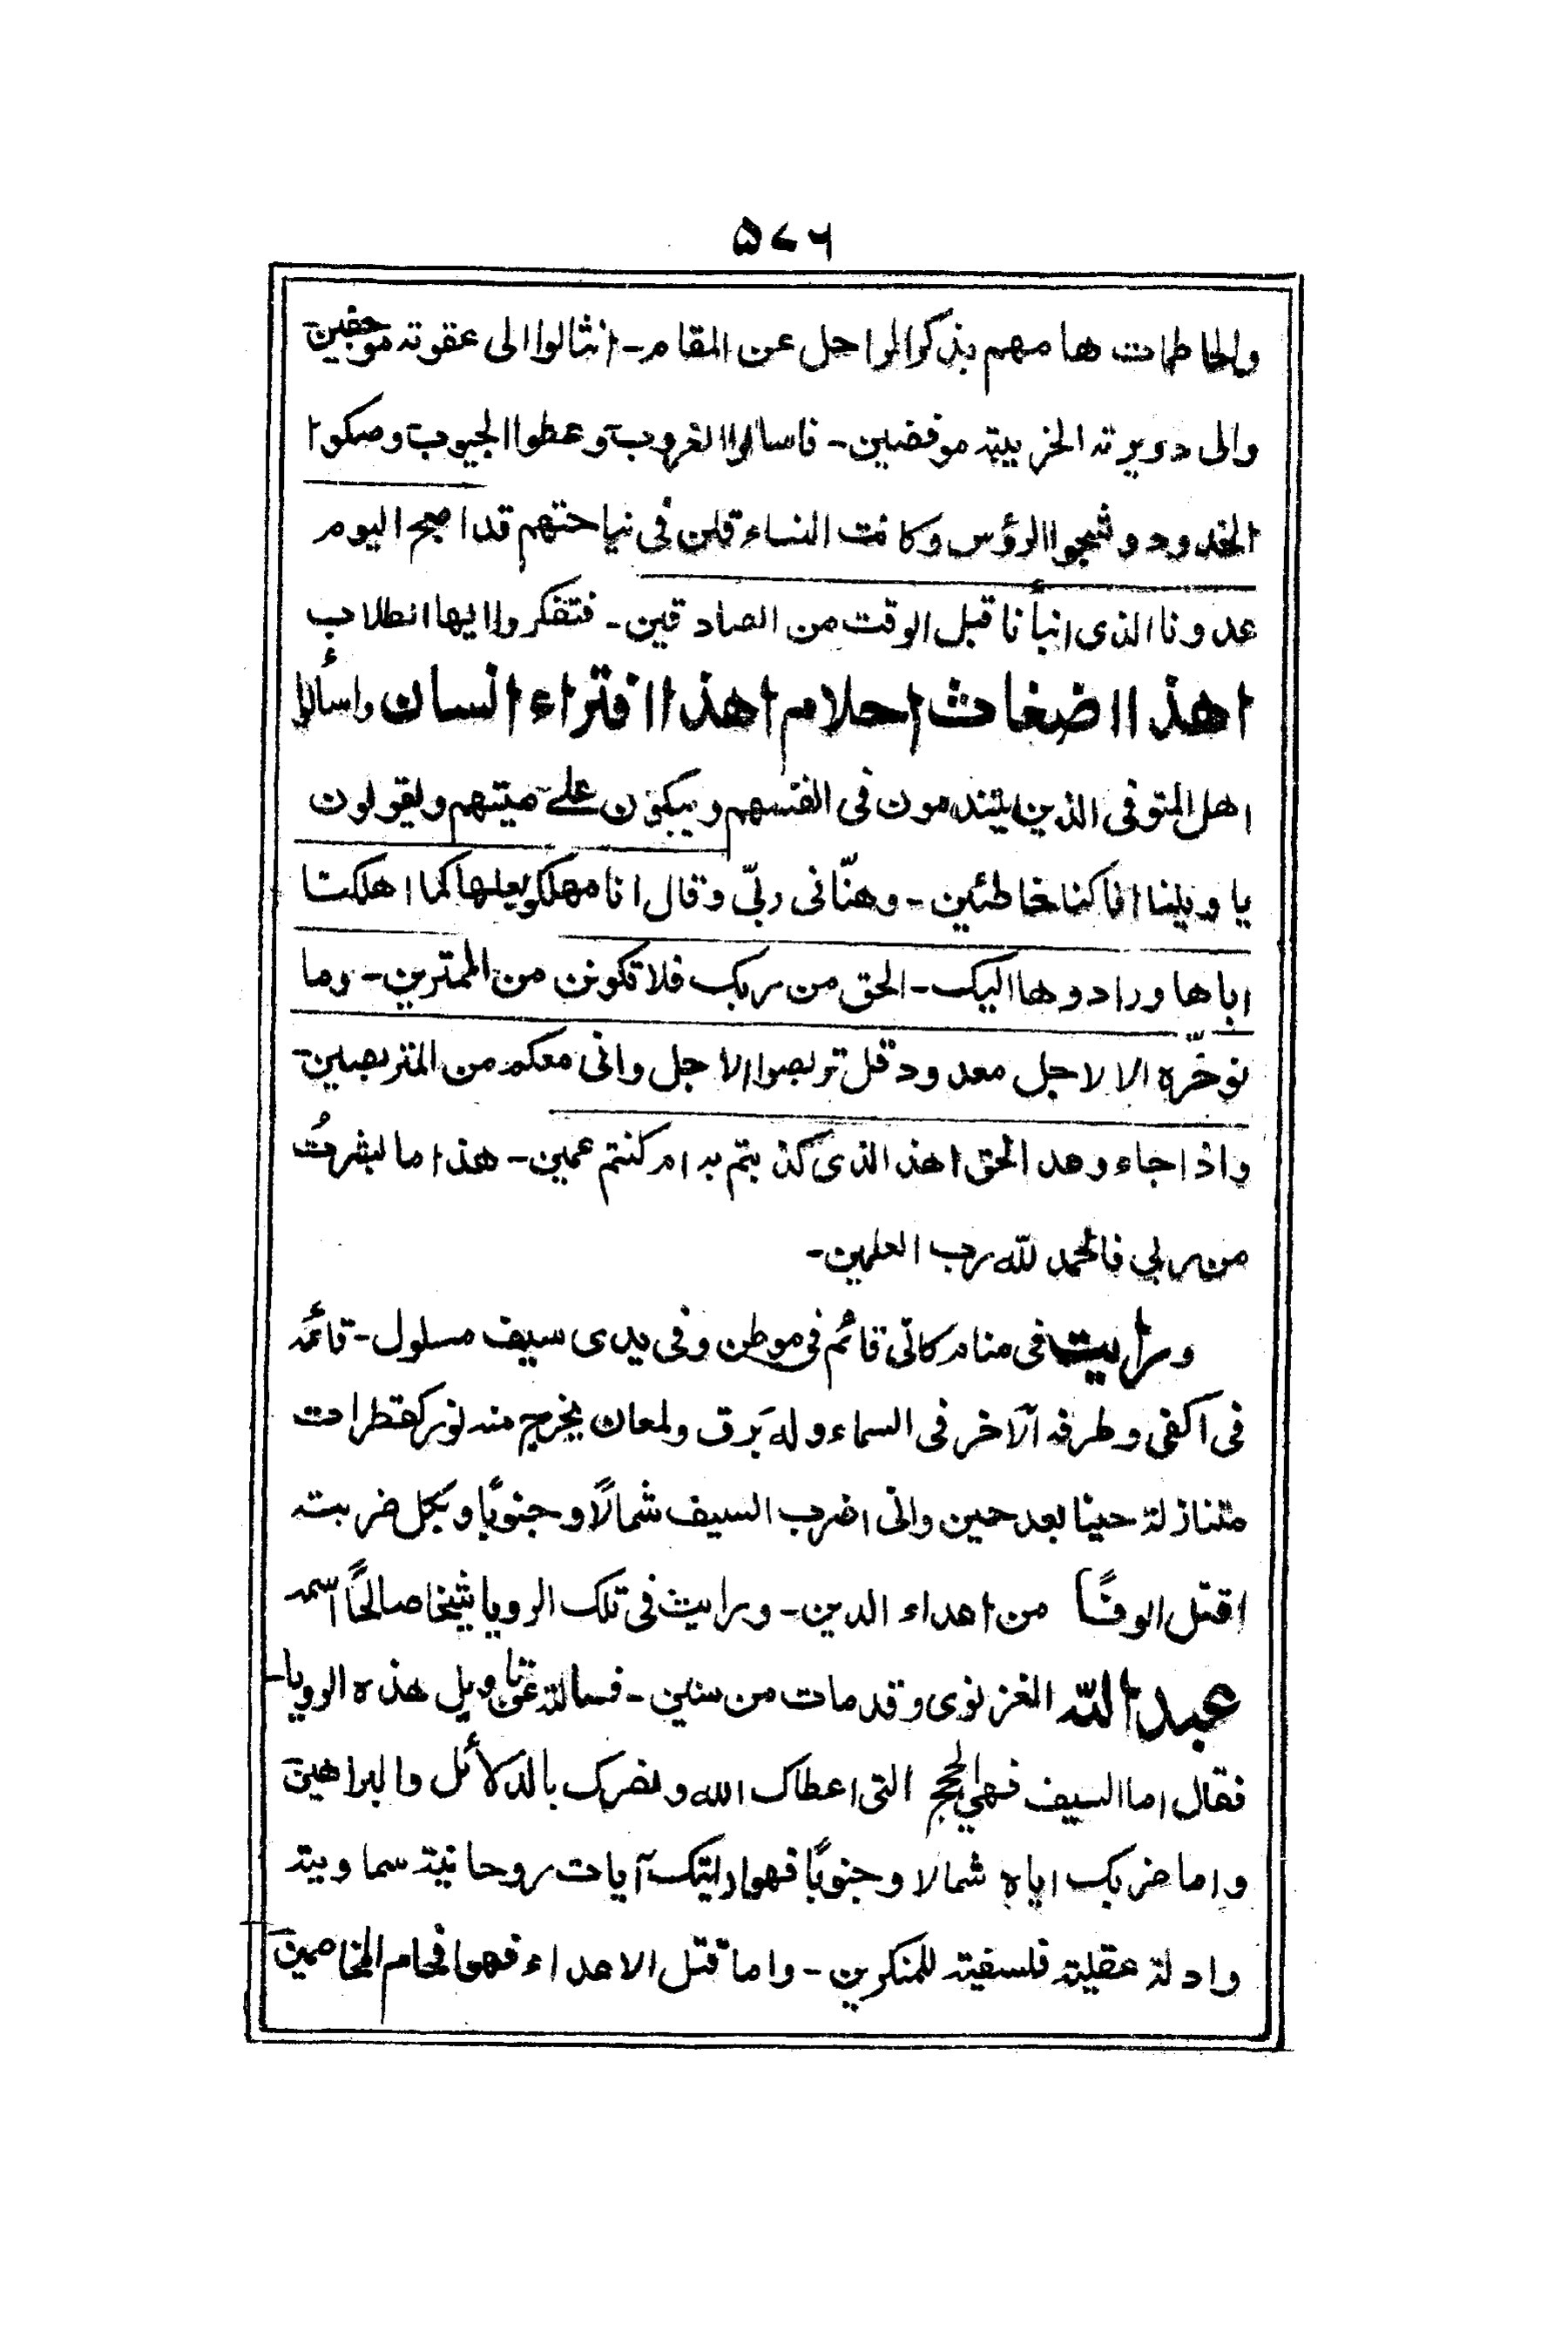 ۵۷۶
والخاطمات هامهم بذكر الراحل عن المقام۔ انثالوا الى عقوته موجفين
والى دويرته الخربة موفضين۔ فاسالوا الغروب وعطوا الجيوب وصكوا
الخدود وشجوا الرؤس وكانت النساء قلن فى نياحتهم قد اصبح اليوم
عدونا الذى انبأنا قبل الوقت من الصادقين۔ فتفكروا ايها الطلاب
اهذا اضغاث احلام اهذا افتراء انسان واسألوا
اهل المتوفى الذين يتندمون فى انفسهم ويبكون علے ميتهم ويقولون
يا ويلنا انا كنا خاطئين۔ وهنّانى ربّي وقال انا مهلكو بعلها كما اهلكنا
اباها ورادوها اليك۔ الحق من ربك فلا تكونن من الممترين۔ وما
نوخّره الا لاجل معدود قل تربصوا الاجل وانى معكم من المتربصين۔
واذا جاء وعد الحق اهذا الذى كذبتم به ام كنتم عمين۔ هذا ما بشرتُ
من ربي فالحمد للّه رب العلمين۔
ورايت فى منام كانّى قائم فى موطن وفى يدى سيف مسلول۔ قائمه
فى اكفى وطرفه الآخر فى السماء وله بَرق ولمعان يخرج منه نور كقطرات
متنازلة حينا بعد حين وانى اضرب السيف شمالًا وجنوبًا وبكل ضربة
اقتل الوفًا من اعداء الدين۔ ورايت فى تلك الرويا شيخا صالحًا اسمه
عبد اللّه الغزنوى وقد مات من سنين۔ فسالته عن تاويل هذه الرويا۔
فقال اما السيف فهى الحجج التى اعطاك الله ونصرك بالدلائل والبراهين
واما ضربك اياه شمالا وجنوبًا فهو اراءتك آيات روحانية سماوية
وادلة عقلية فلسفية للمنكرين۔ واما قتل الاعداء فهو افحام المخاصمين